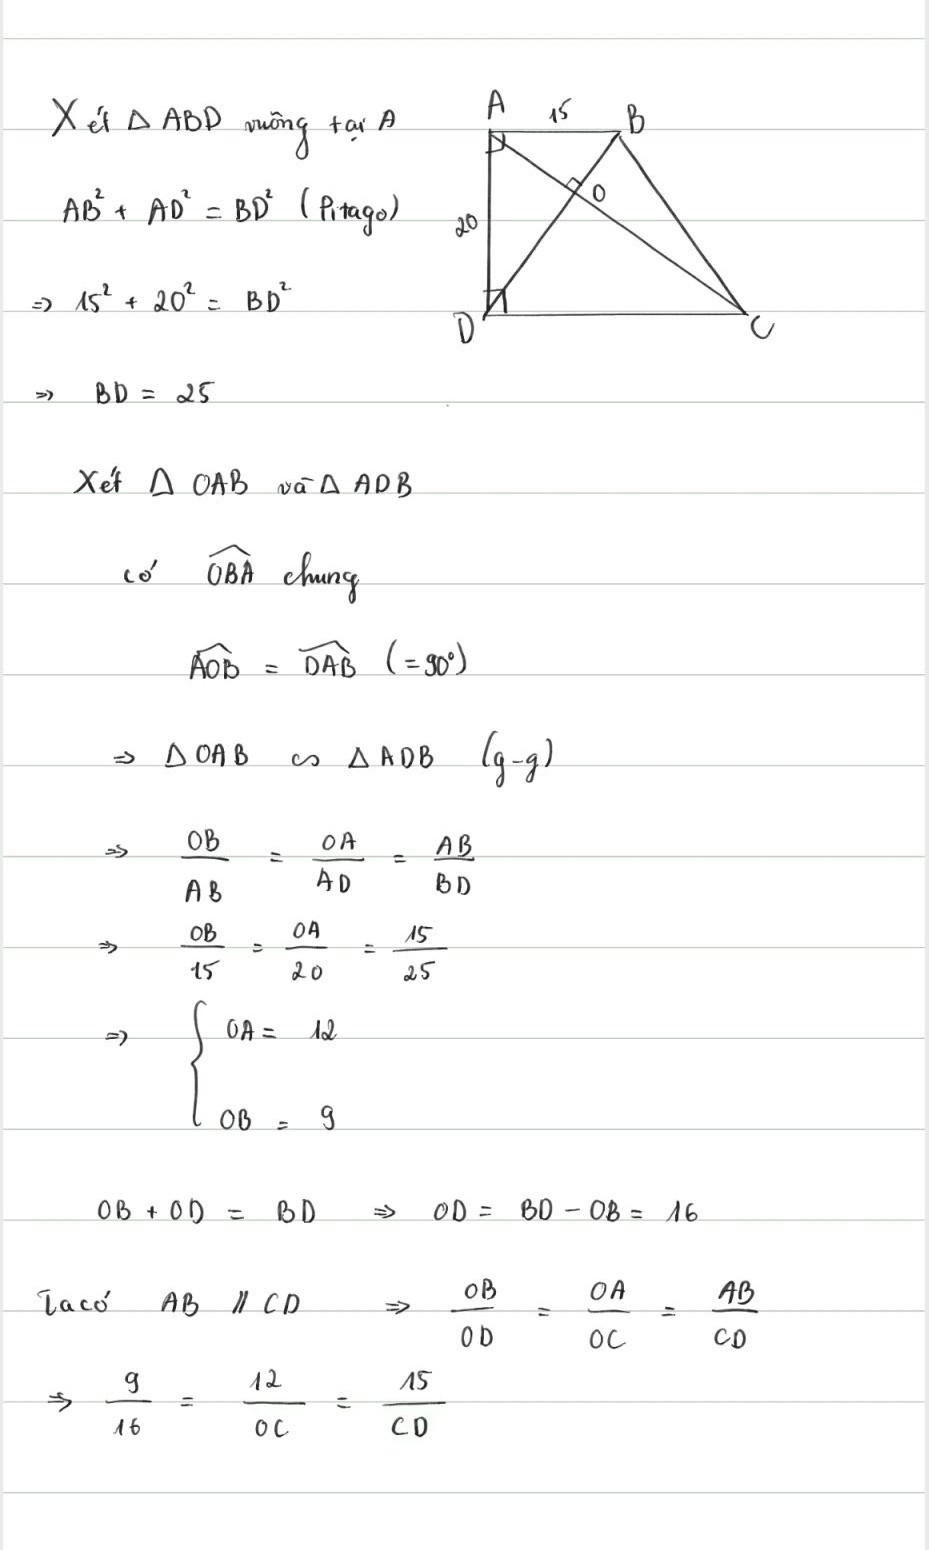 Xét Δ ABD vuông tại A
AB² + AD² = BD² (Pitago)
⇒ 15² + 20² = BD²
⇒ BD = 25
A
15
B
O
20
D
C
Xét Δ OAB và Δ ADB
có \widehat{OBA} chung
\widehat{AOB} = \widehat{DAB} (= 90°)
⇒ Δ OAB ∽ Δ ADB (g-g)
⇒ OB/AB = OA/AD = AB/BD
⇒ OB/15 = OA/20 = 15/25
⇒ { OA = 12
OB = 9
OB + OD = BD ⇒ OD = BD - OB = 16
Ta có AB // CD ⇒ OB/OD = OA/OC = AB/CD
⇒ 9/16 = 12/OC = 15/CD